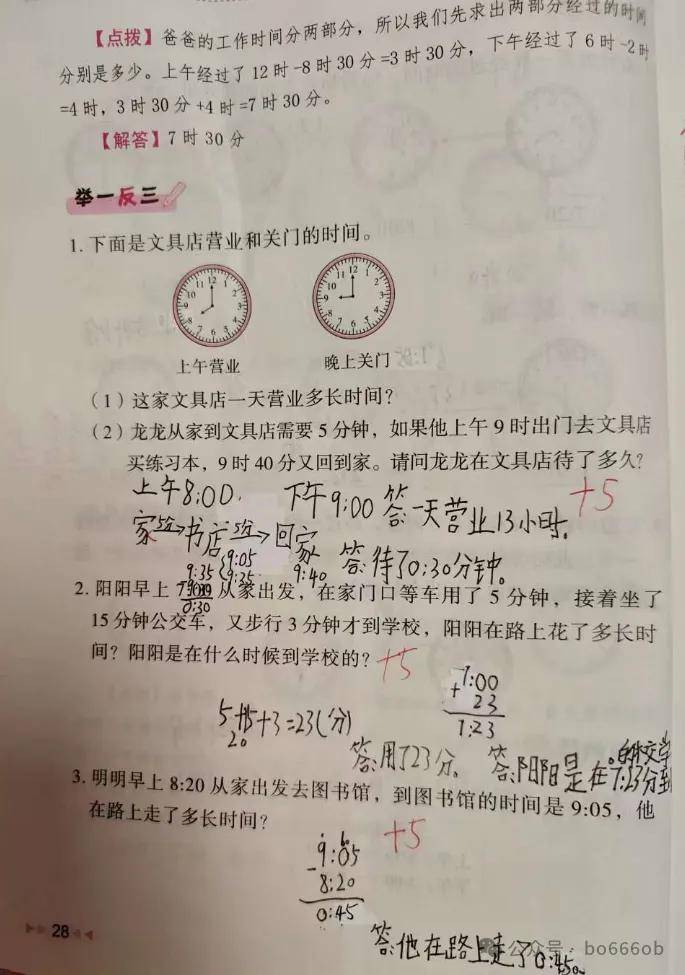 【点拨】爸爸的工作时间分两部分，所以我们先求出两部分经过的时间
分别是多少。上午经过了12时-8时30分=3时30分，下午经过了6时-2时
=4时，3时30分+4时=7时30分。
【解答】7时30分
举一反三
1.下面是文具店营业和关门的时间。
上午营业 晚上关门
（1）这家文具店一天营业多长时间？
（2）龙龙从家到文具店需要5分钟，如果他上午9时出门去文具店
买练习本，9时40分又回到家。请问龙龙在文具店待了多久？
上午8:00. 下午9:00 答:一天营业13小时。 +5
家 5分→书店 5分→回家
9:35 9:05 9:35 9:40 答:待了0:30分钟。
2.阳阳早上 从家出发，在家门口等车用了5分钟，接着坐了
0:30
15分钟公交车，又步行3分钟才到学校，阳阳在路上花了多长时
间？阳阳是在什么时候到学校的？ +5
7:00
+ 23
7:23
5+15+3=23(分)
20
答:用了23分。 答:阳阳是在7:23分到
3.明明早上8:20从家出发去图书馆，到图书馆的时间是9:05，他
在路上走了多长时间？ +5
9:05
-8:20
0:45
28
答:他在路上走了0:45。
公众号 · bo666ob